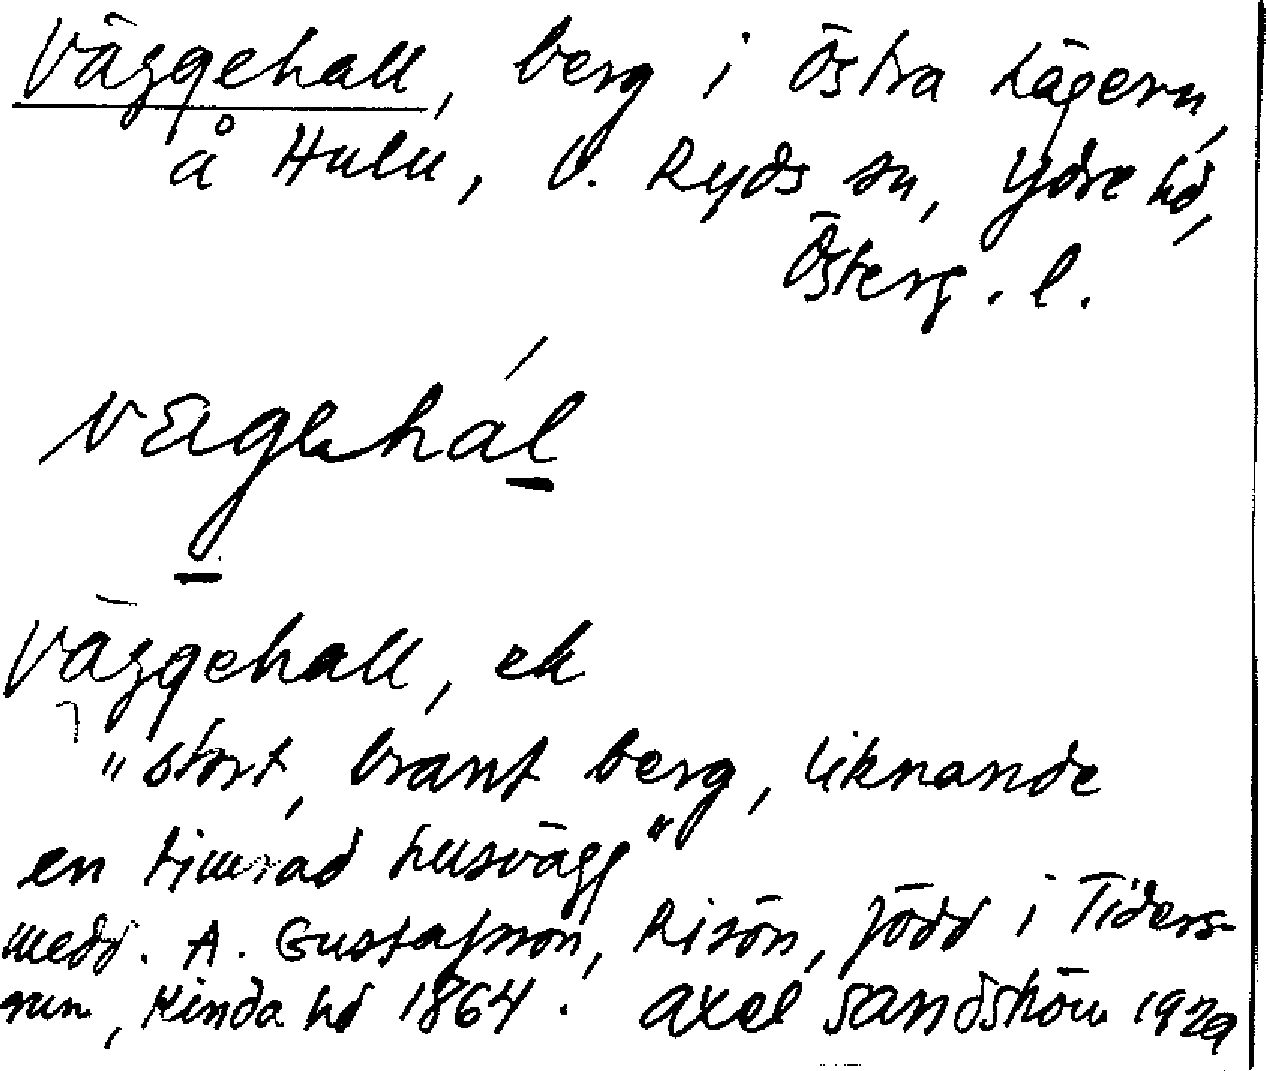 Väggehall, berg i Östra Lägern,
å Hulu, V. Ryds sn, Ydre hd,
Österg. l.
vägehál
Väggehall, ek
"stort, brant berg, liknande
en timrad husvägg"
medd. A. Gustafsson, Risön, född i Tiders-
rum, Kinda hd 1864. Axel Sandström 1929